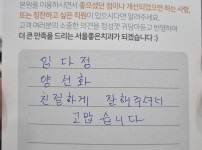 본원을 이용하시면서 좋으셨던 점이나 개선되었으면 하는 사항,
또는 칭찬하고 싶은 직원이 있으시다면 알려주세요.
고객 여러분의 소중한 의견을 정성껏 귀담아듣고 반영하여
더 큰 만족을 드리는 서울좋은치과가 되겠습니다 :)
임다정
양선화
친절하게 잘해주셔서
고맙습니다